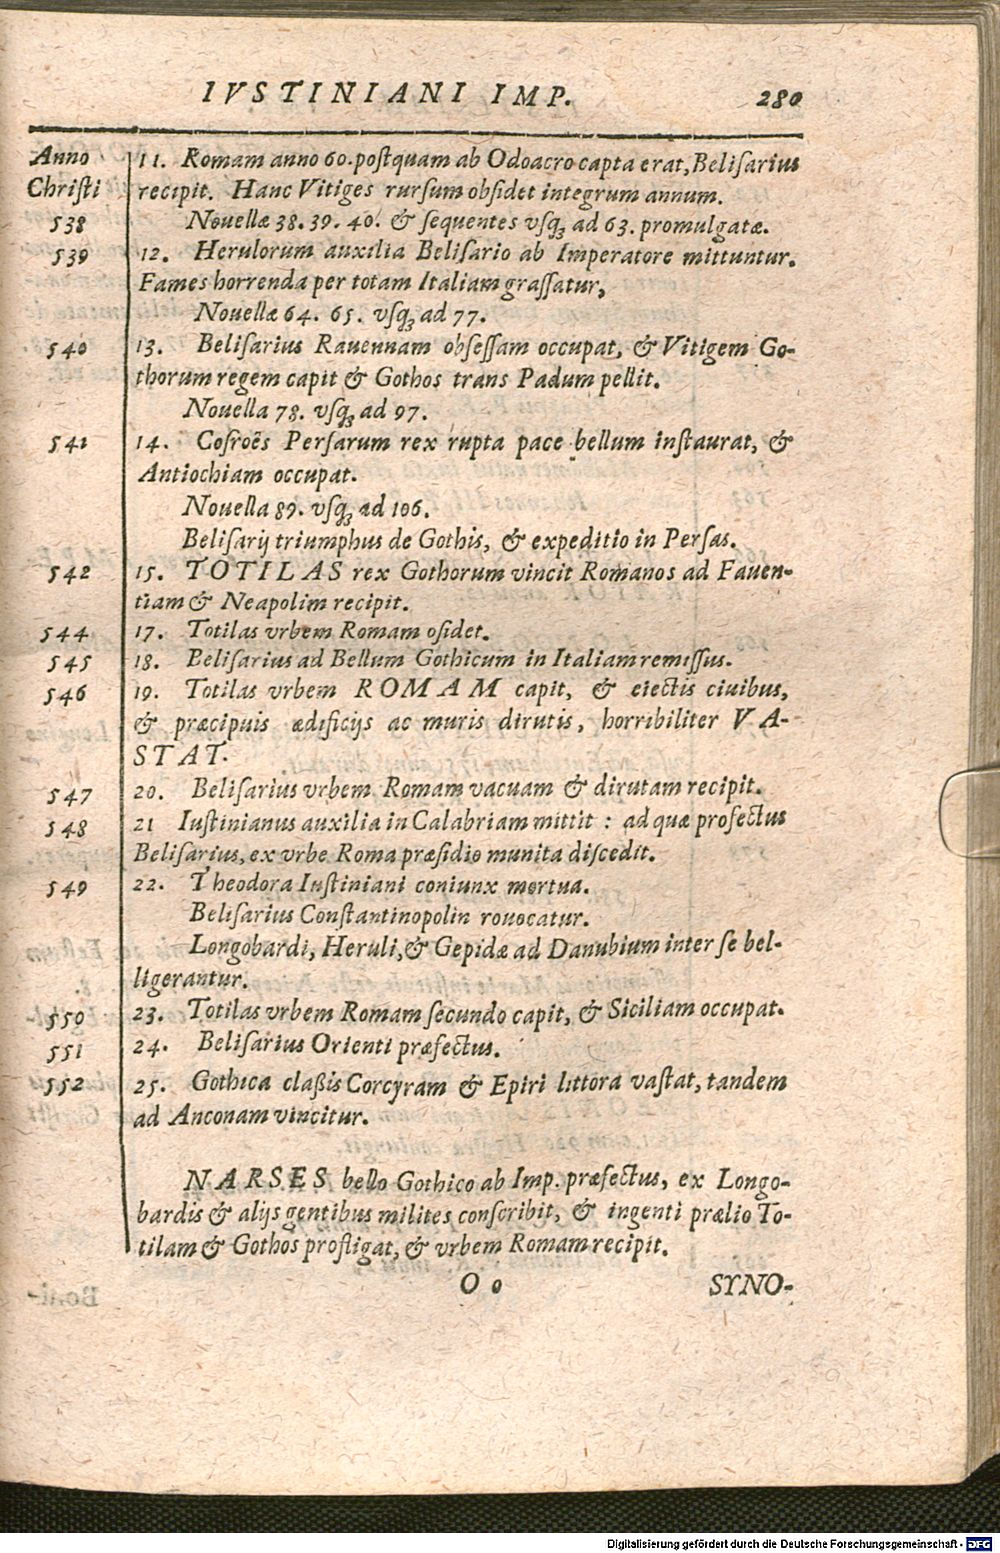 IVSTINIANI IMP. 280
Anno 11. Romam anno 60. postquam ab Odoacro capta erat, Belisarius
Christi recipit. Hanc Vitiges rursum obsidet integrum annum.
538 Nouellæ 38. 39. 40. & sequentes vsq; ad 63. promulgatæ.
539 12. Herulorum auxilia Belisario ab Imperatore mittuntur.
Fames horrenda per totam Italiam grassatur,
Nouellæ 64. 65. vsq; ad 77.
540 13. Belisarius Rauennam obsessam occupat, & Vitigem Go-
thorum regem capit & Gothos trans Padum pellit.
Nouella 78. vsq; ad 97.
541 14. Cosroës Persarum rex rupta pace bellum instaurat, &
Antiochiam occupat.
Nouella 89. vsq; ad 106.
Belisarij triumphus de Gothis, & expeditio in Persas.
542 15. TOTILAS rex Gothorum vincit Romanos ad Fauen-
tiam & Neapolim recipit.
544 17. Totilas vrbem Romam osidet.
545 18. Belisarius ad Bellum Gothicum in Italiam remissus.
546 19. Totilas vrbem ROMAM capit, & eiectis ciuibus,
& præcipuis ædificijs ac muris dirutis, horribiliter VA-
STAT.
547 20. Belisarius vrbem Romam vacuam & dirutam recipit.
548 21 Iustinianus auxilia in Calabriam mittit : ad quæ profectus
Belisarius, ex vrbe Roma præsidio munita discedit.
549 22. Theodora Iustiniani coniunx mortua.
Belisarius Constantinopolin rouocatur.
Longobardi, Heruli, & Gepidæ ad Danubium inter se bel-
ligerantur.
550 23. Totilas vrbem Romam secundo capit, & Siciliam occupat.
551 24. Belisarius Orienti præfectus.
552 25. Gothica classis Corcyram & Epiri littora vastat, tandem
ad Anconam vincitur.
NARSES bello Gothico ab Imp. præfectus, ex Longo-
bardis & alijs gentibus milites conscribit, & ingenti prælio To-
tilam & Gothos profligat, & vrbem Romam recipit.
O o SYNO-
Digitalisierung gefördert durch die Deutsche Forschungsgemeinschaft - DFG